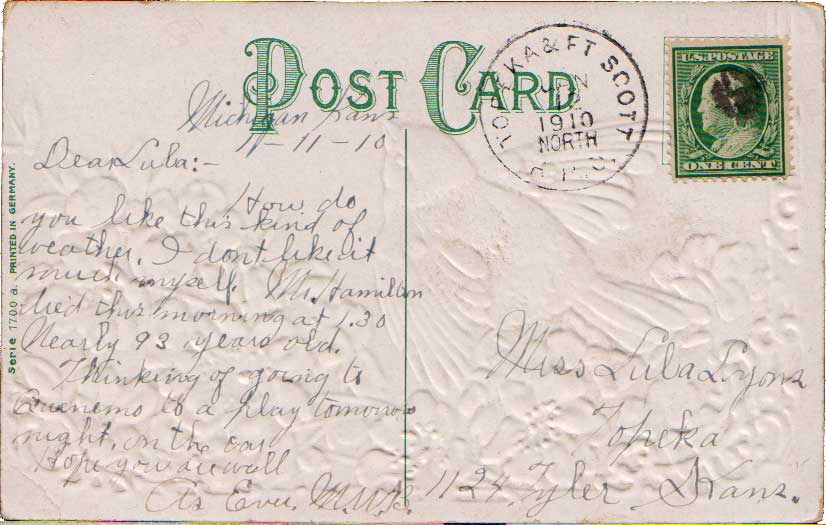 POST CARD
TOPEKA & FT SCOTT
1910
NORTH
U.S. POSTAGE
ONE CENT
Serie 1700 a. PRINTED IN GERMANY.
Michigan Kans
11-11-10
Dear Lula:-
How do
you like this kind of
weather. I dont like it
much myself. Mr. Hamilton
died this morning at 1.30
Nearly 93 years old.
Thinking of going to
Quenemo to a play tomorrow
night, on the car
Hope you are well
As Ever, M.W.B.
Miss Lula Lyons
Topeka
1124 Tyler Kans.